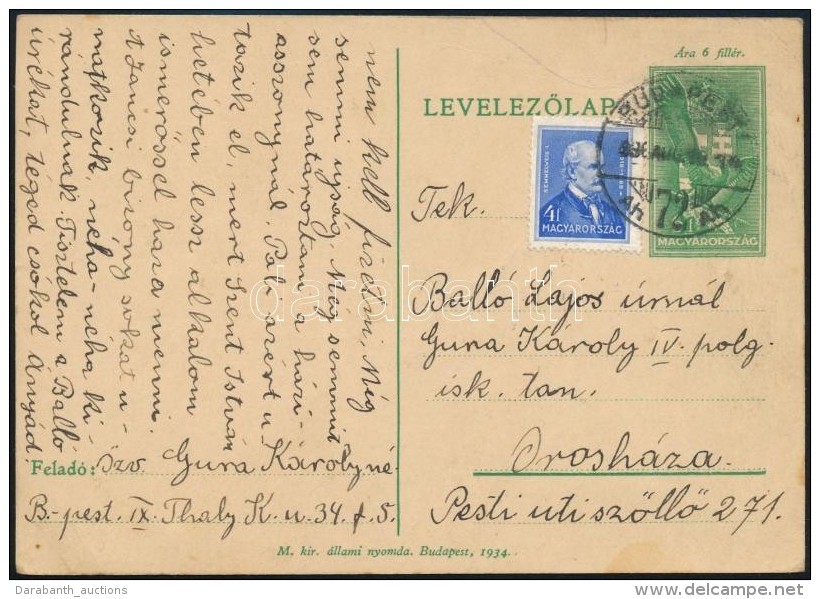 nem kell fizetni, Még
semmi ujság. Még semmit
sem határoztam a házi-
asszonynál. Pali azért u
tazik el, mert Szent István
hetében lessz alkalom
ismerőssel haza menni.
A Jancsi bizony sokat u-
natkozik, néha-néha ki-
rándulnak. Tisztelem a Balló
úrékat, téged csókol Anyád
Feladó: Özv. Gura Károlyné
B.-pest. IX. Thaly K. u. 34. f. 5.
Ára 6 fillér.
LEVELEZŐLAP
BUDAPEST
72
SEMMELWEIS I.
4f
MAGYARORSZÁG
MAGYARORSZÁG
Tek.
Balló Lajos úrnál
Gura Károly IV. polg.
isk. tan.
Orosháza.
Pesti uti szőllő 271.
M. kir. állami nyomda. Budapest, 1934.
darabanth
Darabanth_auctions
delcampe.net